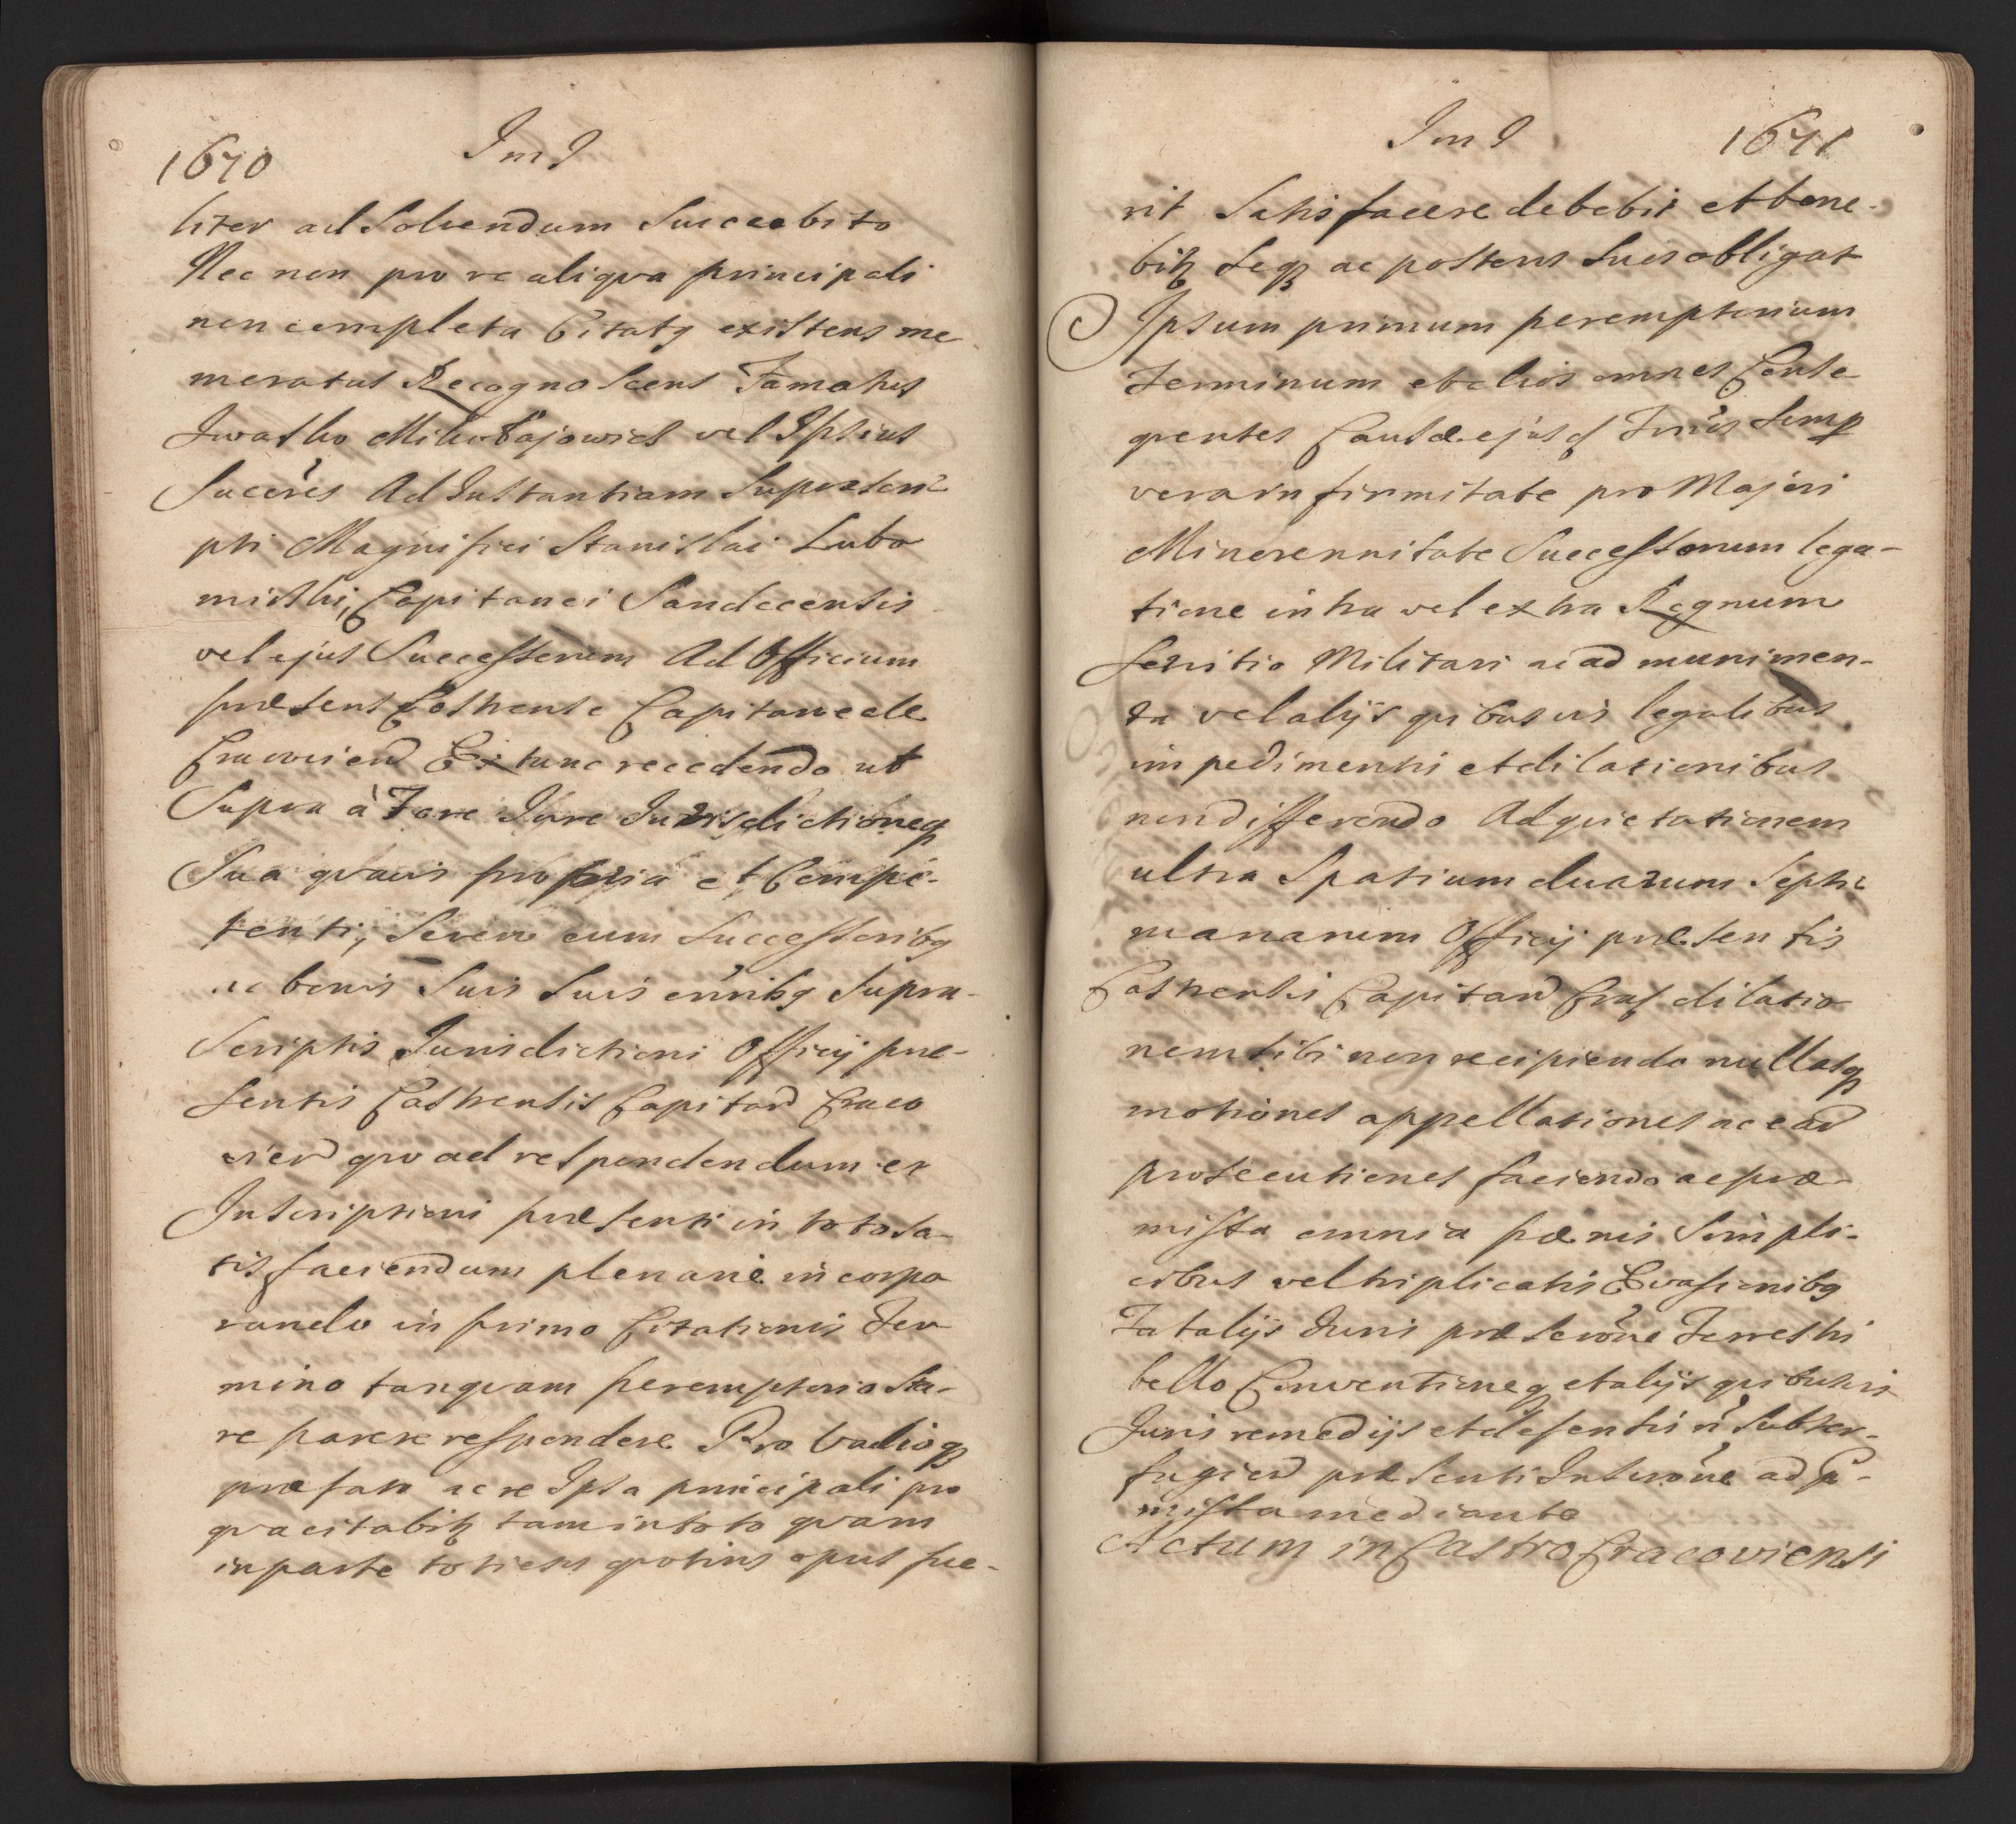 1670
Im I
liter ad Solvendum Succubito
Nec non pro re aliqva principali
non completa Citatq existens me
moratus Recognoscens Famatus
Iwasko Mikołajowicz vel Ipsius
Succeres Ad Instantiam Suprascri
pti Magnifici Stanislai Lubo
mirski, Capitanei Sandecensis
vel ejus Successorum Ad Officium
præsens Castrense Capitaneale
Cracovien Ex tunc recedendo ut
Supra à Foro Iure Iurisdictioneq
Sua qvavis propria et Compe-
tenti, Seseve cum Successoribq
ac bonis Suis Suis omnibq Supra-
Scriptis Jurisdictioni Officij præ-
sentis Castrensis Capitan Craco
vien qvo ad respondendum et
Inscriptioni præsenti in toto sa-
tisfaciendum plenarie incorpo
rando in primo Citationis Ter
mino tanqvam peremptorio Sta-
re parere respondere Pro Vadioq
præfato ac re Ipsa principali pro
qva citabitz tam in toto qvam
in parte toties qvoties opus fue-
Im I
1671
rit Satisfacere debebit et tene-
bitz Seqz ac posteros Suos obligat
Ipsum primum peremptorium
Terminum et alios omnes Conse
qventes Causæ ejusd Iuris Semp
vera in firmitate pro Majori
Minorennitate Successorum lega-
tione intra vel extra Regnum
Servitio Militari ac ad munimen-
ta vel alijs qvibusvis legalibus
impedimentis et dilationibus
non differendo Ad qvietationem
ultra Spatium duarum Septi
manarum Officij præsentis
Castrensis Capitan Crac dilatio
nem sibi non recipiendo nullasq
motiones appellationes ac ear
prosecutiones faciendo ac præ
missa omnia pœnis Simpli-
cibus vel triplicatis Evasionibq
Fatalijs Iuris præscrone Terrestri
bello Conventioneq et alijs qvibusvis
Juris remedijs et defensis n Subter-
fugien præsenti Inscrone ad p-
missa mediante
Actum in Castro Cracoviensi